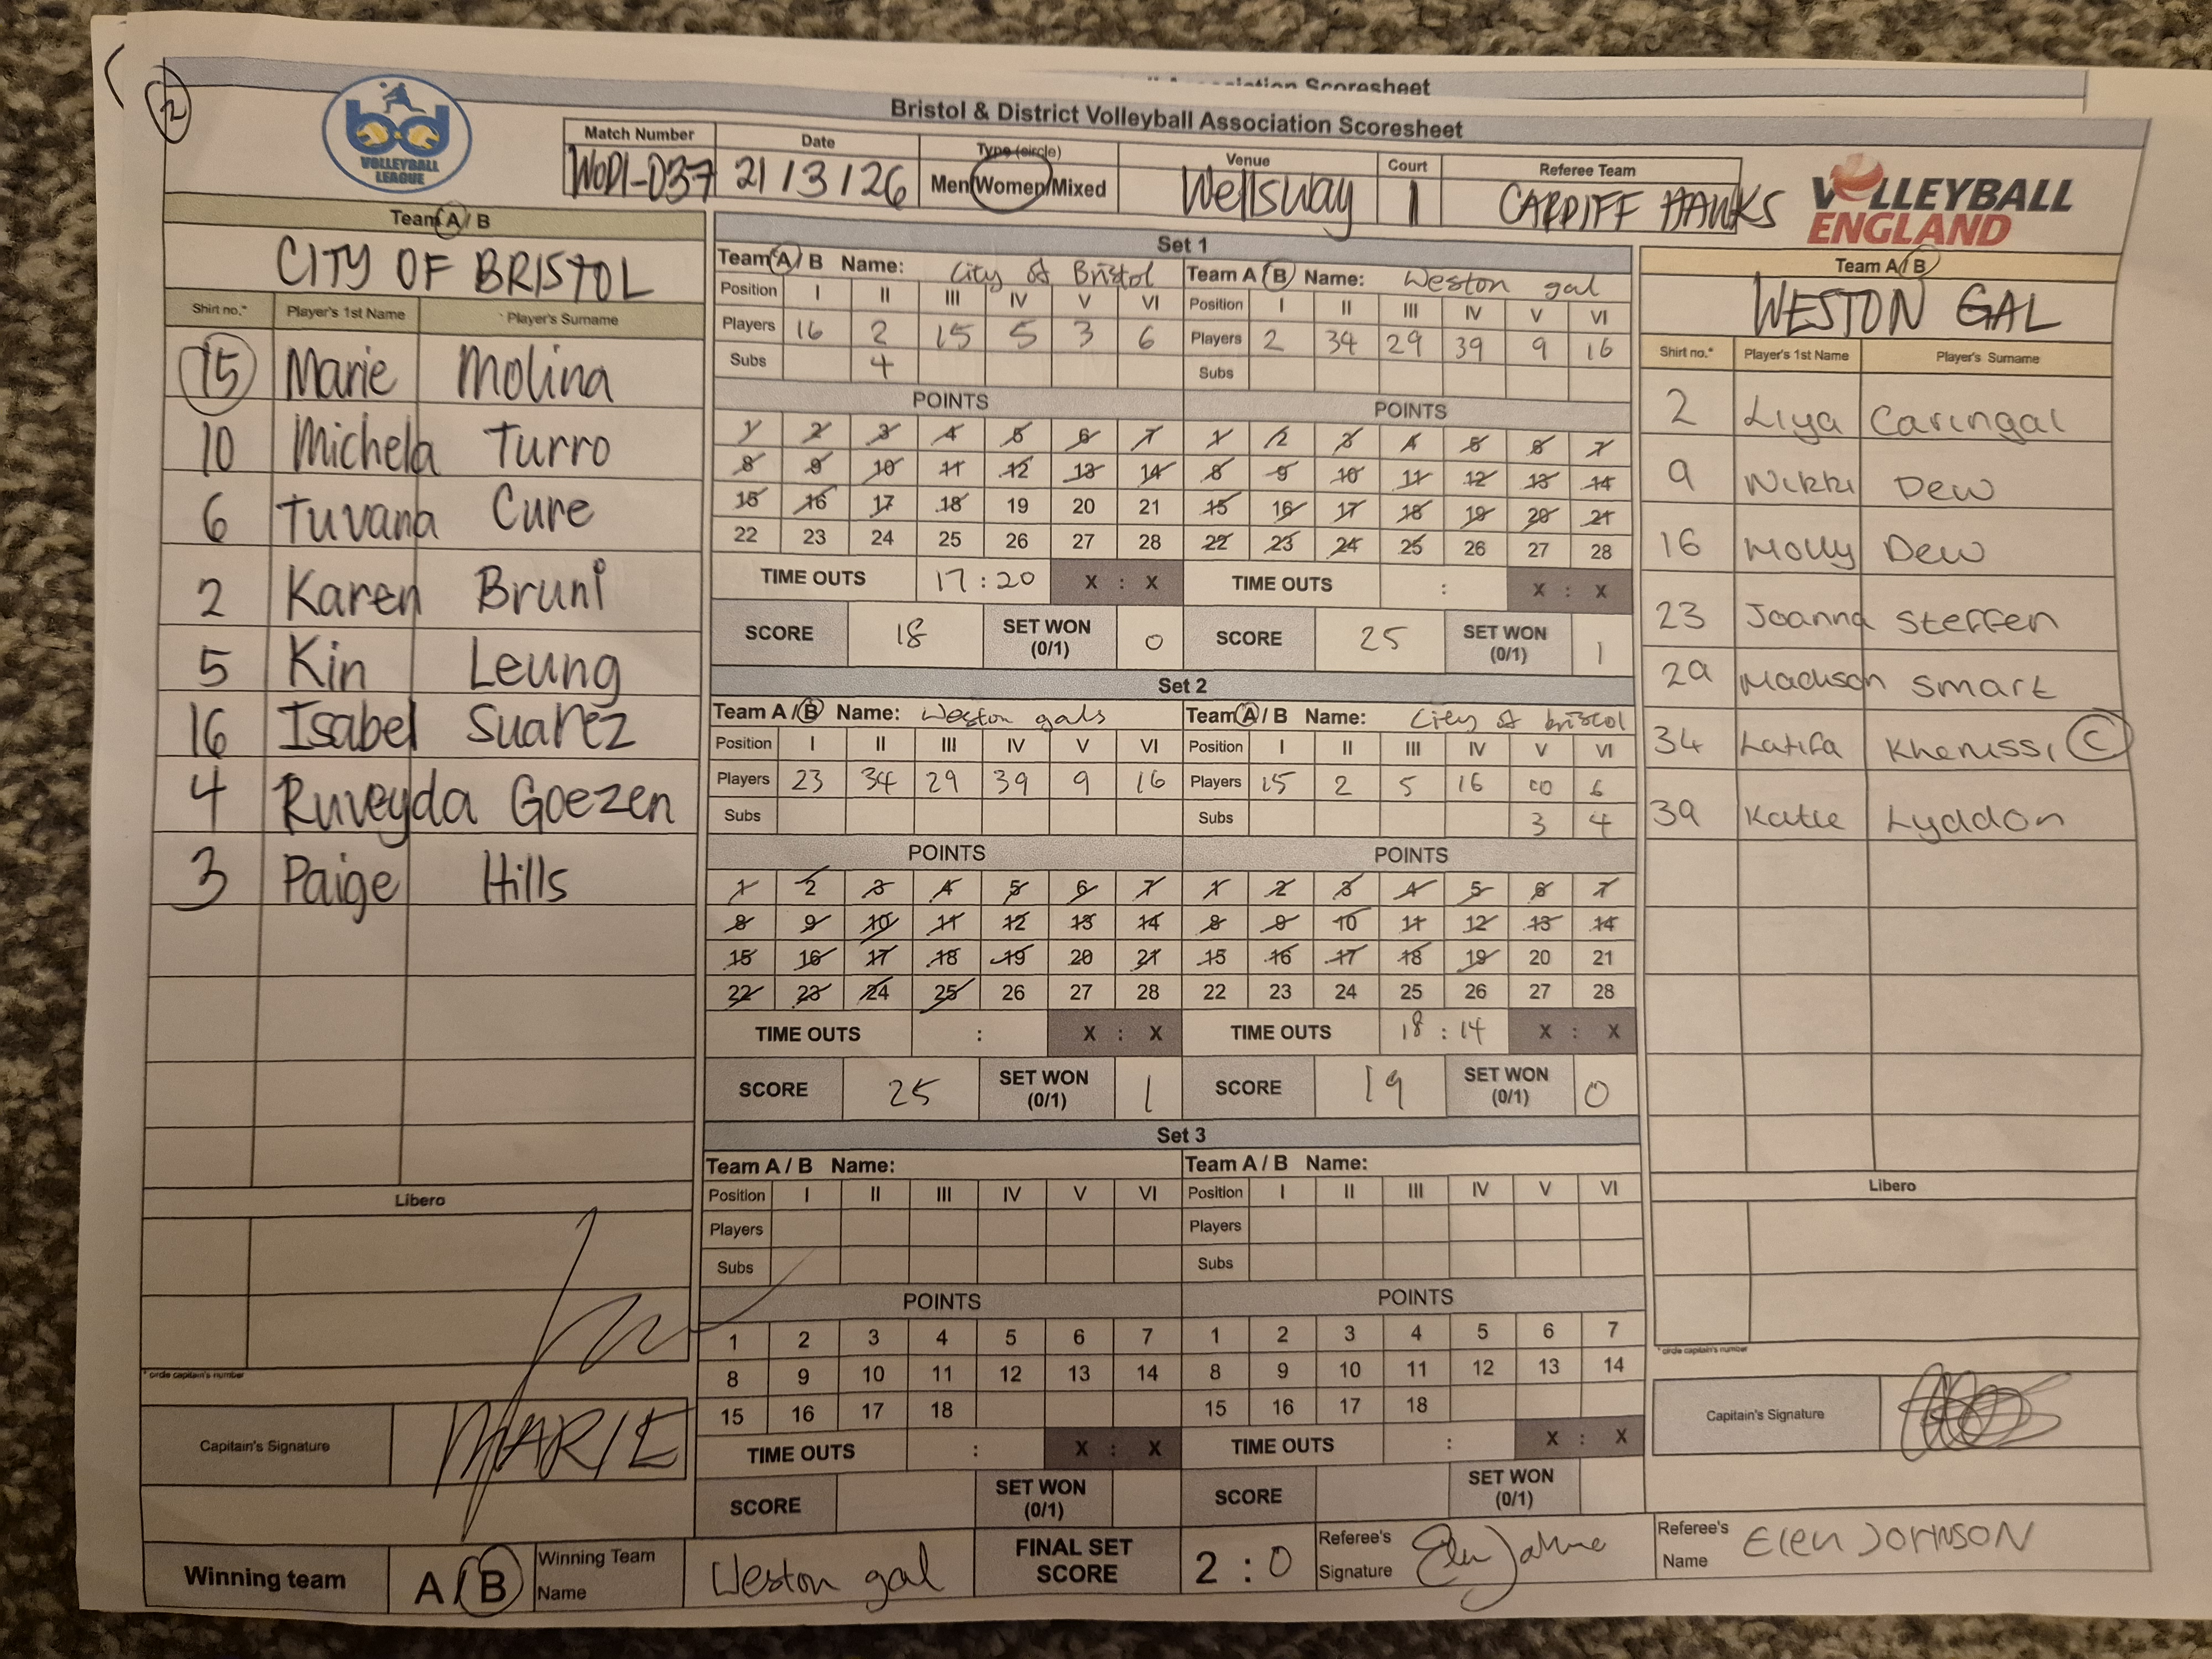 ll Association Scoresheet
2
VOLLEYBALL
LEAGUE
Bristol & District Volleyball Association Scoresheet
Match Number Date Type (circle) Venue Court Referee Team
WODI-037 21/3/26 Men/Women/Mixed Wellsway 1 CARDIFF HAWKS
VOLLEYBALL
ENGLAND
Team A / B
CITY OF BRISTOL
Shirt no.* Player's 1st Name Player's Surname
15 Marie Molina
10 Michela Turro
6 Tuvana Cure
2 Karen Bruni
5 Kin Leung
16 Isabel Suarez
4 Ruveyda Goezen
3 Paige Hills
Libero
* circle capitain's number
Capitain's Signature MARIE
Set 1
Team A / B Name: City of Bristol
Position I II III IV V VI
Players 16 2 15 5 3 6
Subs 4
POINTS
1 2 3 4 5 6 7
8 9 10 11 12 13 14
15 16 17 18 19 20 21
22 23 24 25 26 27 28
TIME OUTS 17 : 20 X : X
SCORE 18 SET WON (0/1) 0
Team A / B Name: Weston gal
Position I II III IV V VI
Players 2 34 29 39 9 16
Subs
POINTS
1 2 3 4 5 6 7
8 9 10 11 12 13 14
15 16 17 18 19 20 21
22 23 24 25 26 27 28
TIME OUTS : X : X
SCORE 25 SET WON (0/1) 1
Set 2
Team A / B Name: Weston gals
Position I II III IV V VI
Players 23 34 29 39 9 16
Subs
POINTS
1 2 3 4 5 6 7
8 9 10 11 12 13 14
15 16 17 18 19 20 21
22 23 24 25 26 27 28
TIME OUTS : X : X
SCORE 25 SET WON (0/1) 1
Team A / B Name: City of bristol
Position I II III IV V VI
Players 15 2 5 16 10 6
Subs 3 4
POINTS
1 2 3 4 5 6 7
8 9 10 11 12 13 14
15 16 17 18 19 20 21
22 23 24 25 26 27 28
TIME OUTS 18 : 14 X : X
SCORE 19 SET WON (0/1) 0
Set 3
Team A / B Name:
Position I II III IV V VI
Players
Subs
POINTS
1 2 3 4 5 6 7
8 9 10 11 12 13 14
15 16 17 18
TIME OUTS : X : X
SCORE SET WON (0/1)
Team A / B Name:
Position I II III IV V VI
Players
Subs
POINTS
1 2 3 4 5 6 7
8 9 10 11 12 13 14
15 16 17 18
TIME OUTS : X : X
SCORE SET WON (0/1)
Team A / B
WESTON GAL
Shirt no.* Player's 1st Name Player's Surname
2 Liya Caringal
9 Nikki Dew
16 Molly Dew
23 Joanna Steffen
29 Madison Smart
34 Latifa Khenissi C
39 Katie Lyddon
Libero
* circle capitain's number
Capitain's Signature
Winning team A / B Winning Team Name Weston gal FINAL SET SCORE 2 : 0 Referee's Signature Referee's Name Elen JOHNSON